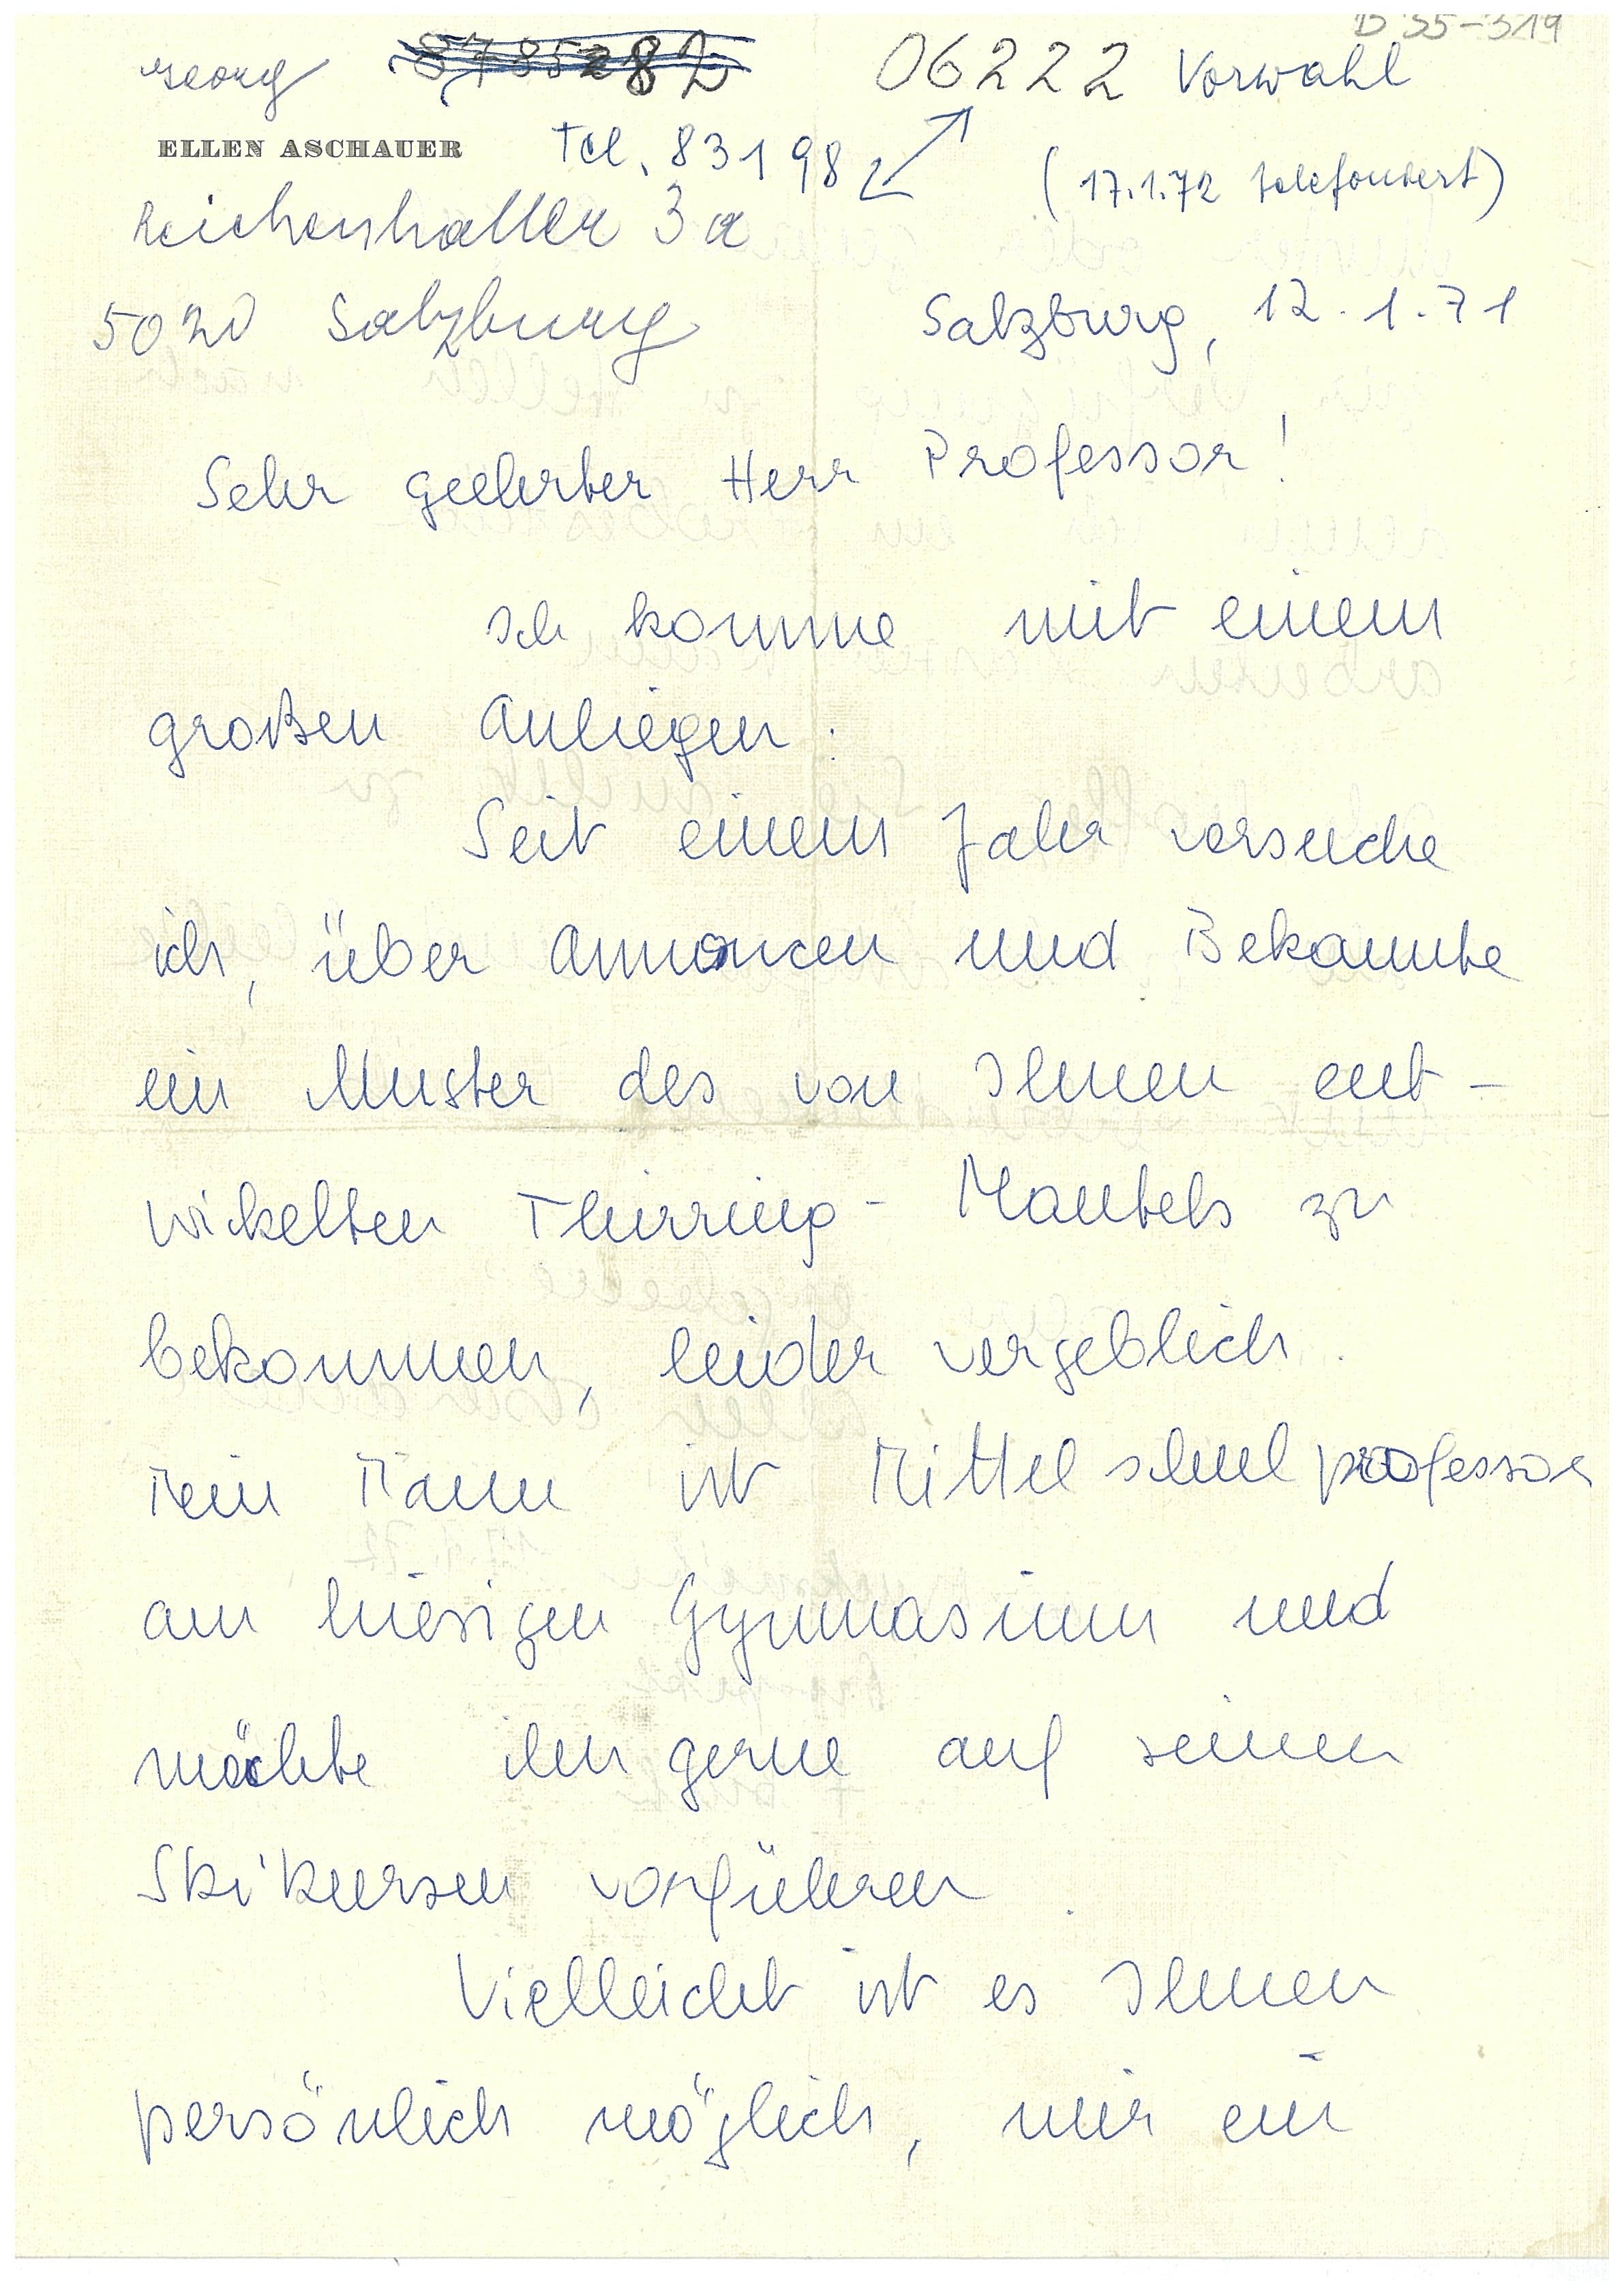 B 35-319
Georg 8785282 06222 Vorwahl
ELLEN ASCHAUER Tel. 83198
(17.1.72 telefoniert)
Reichenhaller 3a
5020 Salzburg
Salzburg, 12.1.71
Sehr geehrter Herr Professor!
Ich komme mit einem
großen Anliegen:
Seit einem Jahr versuche
ich, über Annoncen und Bekannte
ein Muster des von Ihnen ent-
wickelten Thirring-Mantels zu
bekommen, leider vergeblich.
Mein Mann ist Mittelschulprofessor
am hiesigen Gymnasium und
möchte ihn gerne auf seinen
Skikursen vorführen.
Vielleicht ist es Ihnen
persönlich möglich, mir ein